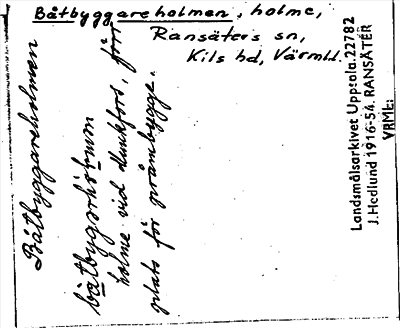 Båtbyggareholmen, holme,
Ransäters sn,
Kils hd, Värml.
Båtbyggareholmen
holme vid Munkfors, förr
plats för pråmbygge.
Landsmålsarkivet Uppsala. 22782
J. Hedlund 1916-54. RANSÄTER
VRML: